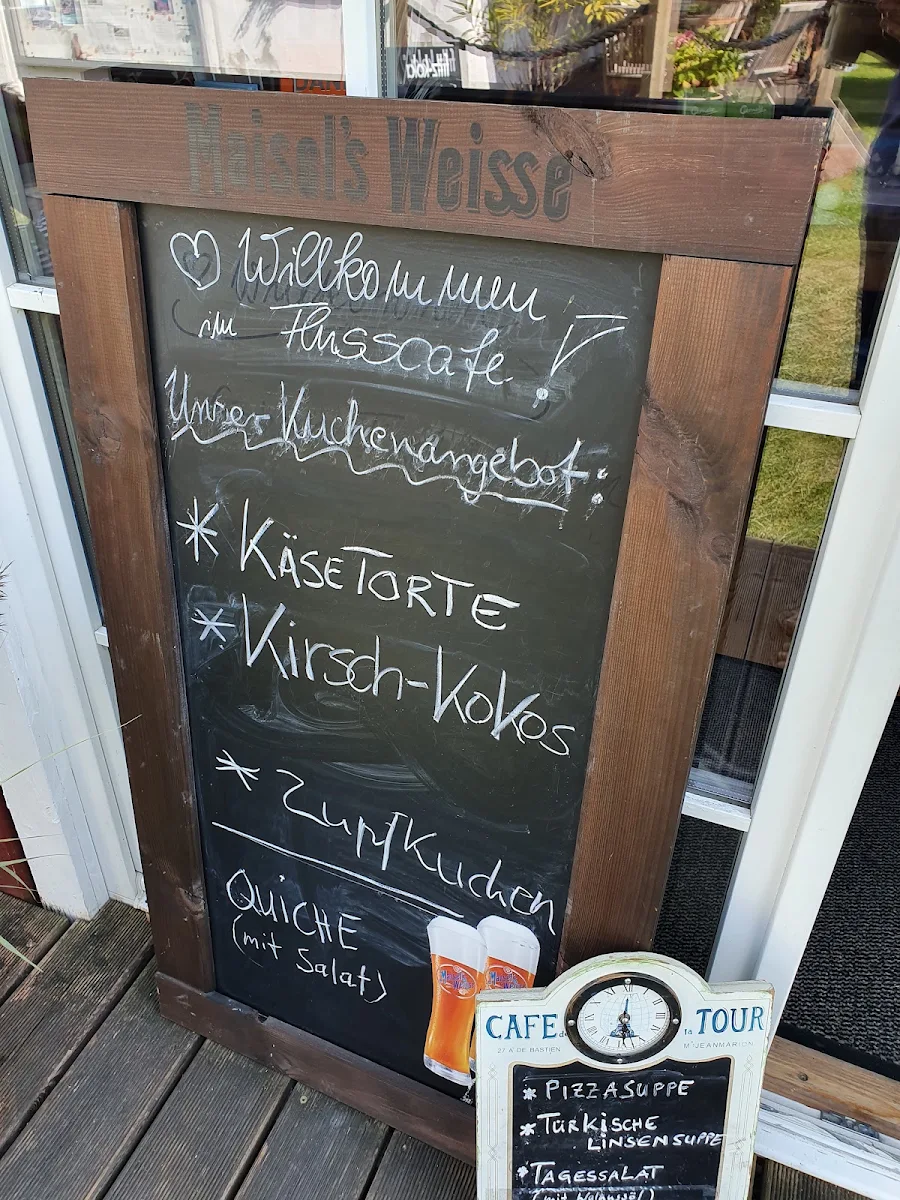 Maisel's Weisse
Willkommen
im Flusscafe!
Unser Kuchenangebot:
* KÄSETORTE
* Kirsch-Kokos
* Zupfkuchen
QUICHE
(mit Salat)
Maisel's Weisse
Maisel's Weisse
CAFE de la TOUR
27 A DE BASTIEN
M JEANMARION
* PIZZASUPPE
* TÜRKISCHE
LINSENSUPPE
* TAGESSALAT
fritz-kola